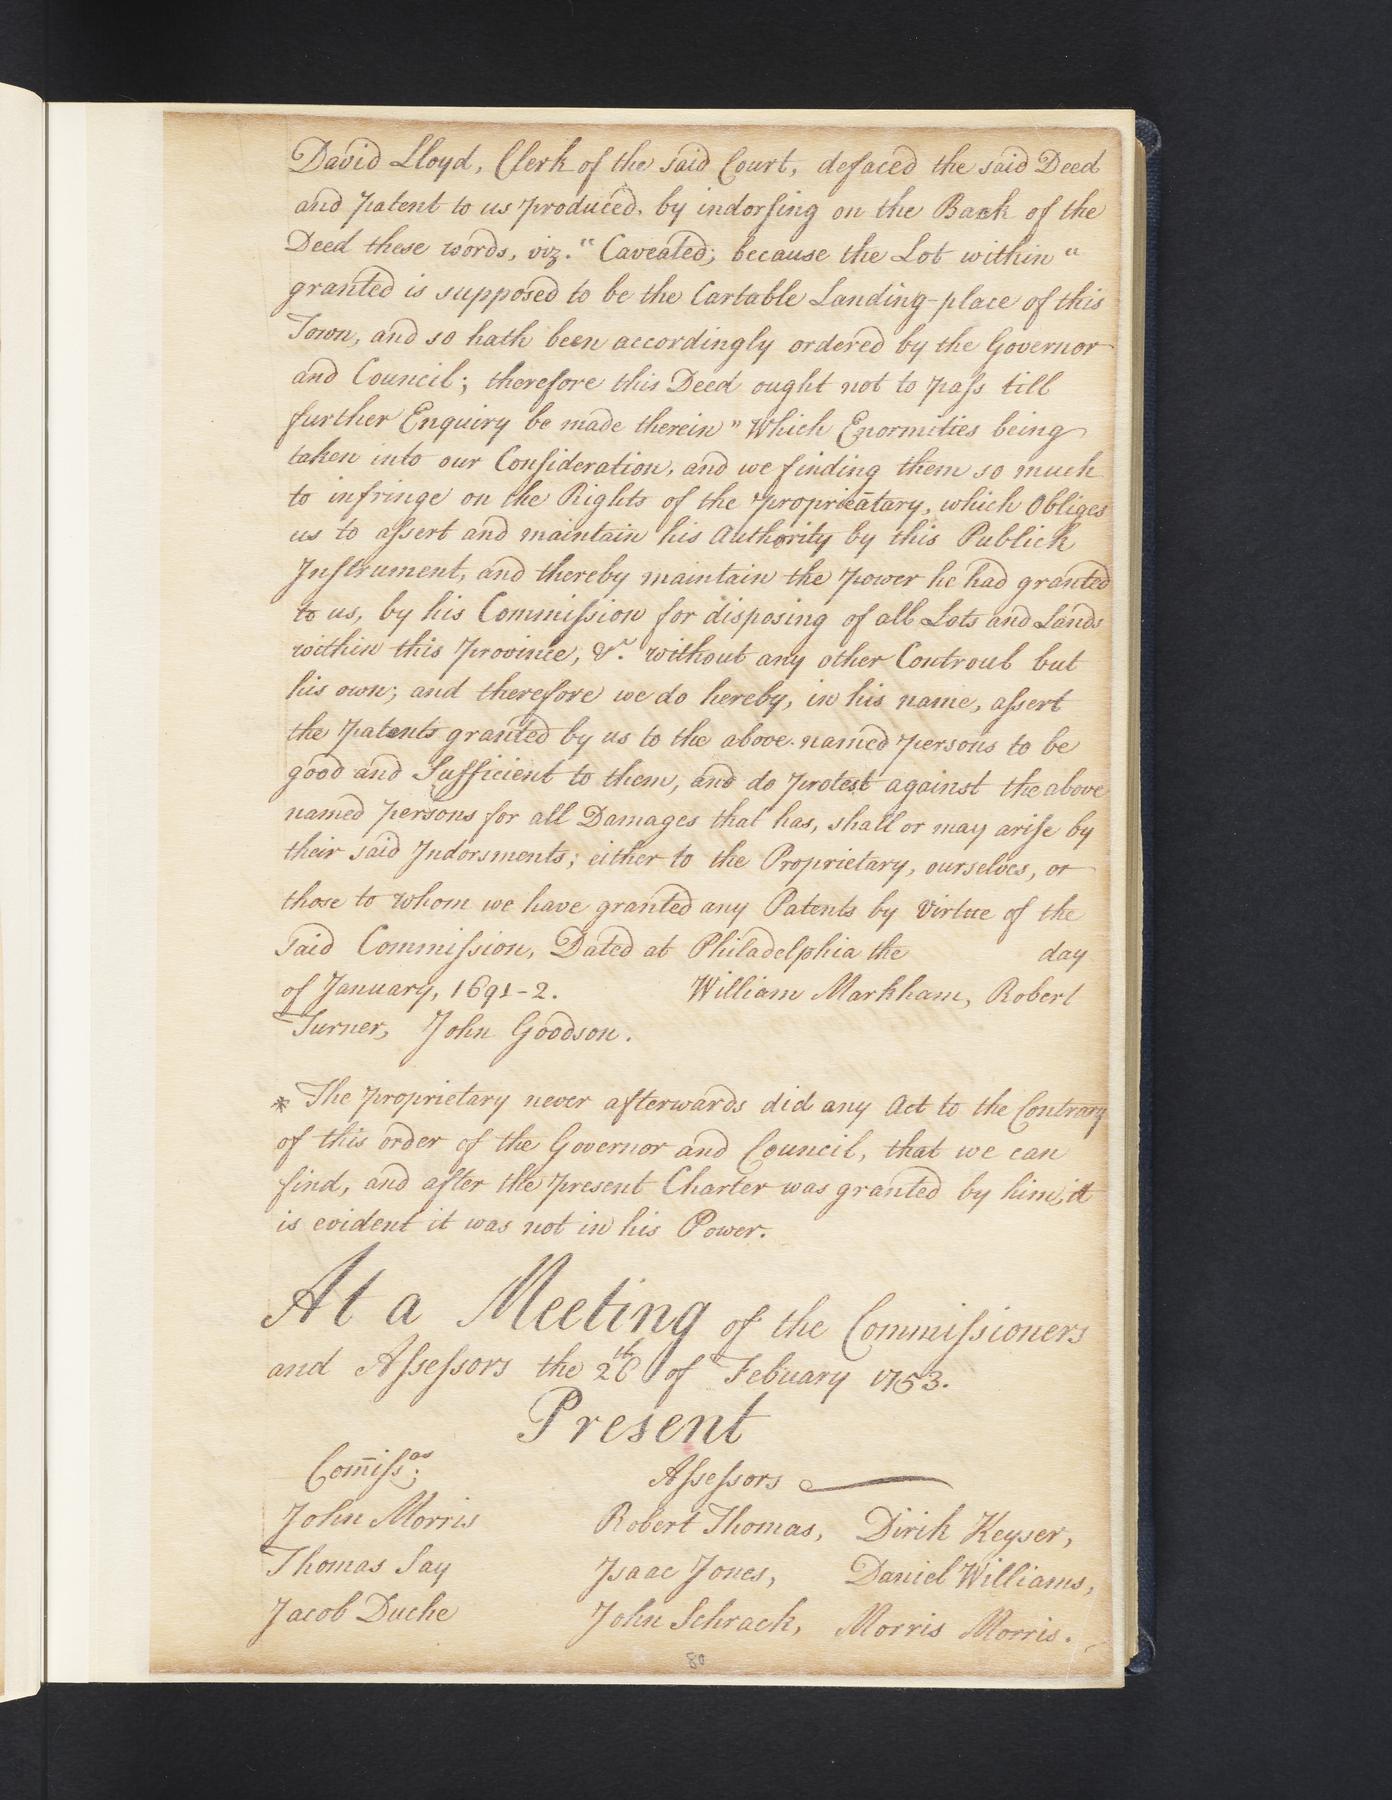 David Lloyd, Clerk of the said Court, defaced the said Deed
and patent to us produced, by indorsing on the Back of the
Deed these words, viz. "Caveated; because the Lot within "
granted is supposed to be the Cartable Landing-place of this
Town, and so hath been accordingly ordered by the Governor
and Council; therefore this Deed ought not to pass till
further Enquiry be made therein" Which Enormities being
taken into our Consideration, and we finding them so much
to infringe on the Rights of the proprieatary, which Obliges
us to assert and maintain his Authority by this Publick
Instrument, and thereby maintain the power he had granted
to us, by his Commission for disposing of all Lots and Lands
within this province, &c. without any other Controul but
his own; and therefore we do hereby, in his name, assert
the patents granted by us to the above-named persons to be
good and Sufficient to them, and do protest against the above
named persons for all Damages that has, shall or may arise by
their said Indorsments; either to the Proprietary, ourselves, or
those to whom we have granted any Patents by Virtue of the
said Commission, Dated at Philadelphia the day
of January, 1691-2. William Markham, Robert
Turner, John Goodson.
* The proprietary never afterwards did any Act to the Contrary
of this order of the Governor and Council, that we can
find, and after the present Charter was granted by him, it
is evident it was not in his Power.
At a Meeting of the Commissioners
and Assessors the 26th of Febuary 1753.
Present
Comissrs; Assessors
John Morris Robert Thomas, Dirik Keyser,
Thomas Say Isaac Jones, Daniel Williams,
Jacob Duche John Schrack, Morris Morris.
80